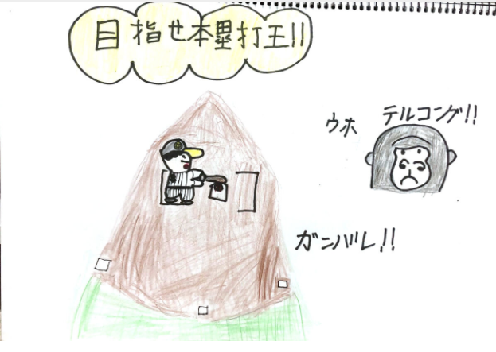 目指せ本塁打王!!
ウホ
テルコング!!
ガンバレ!!